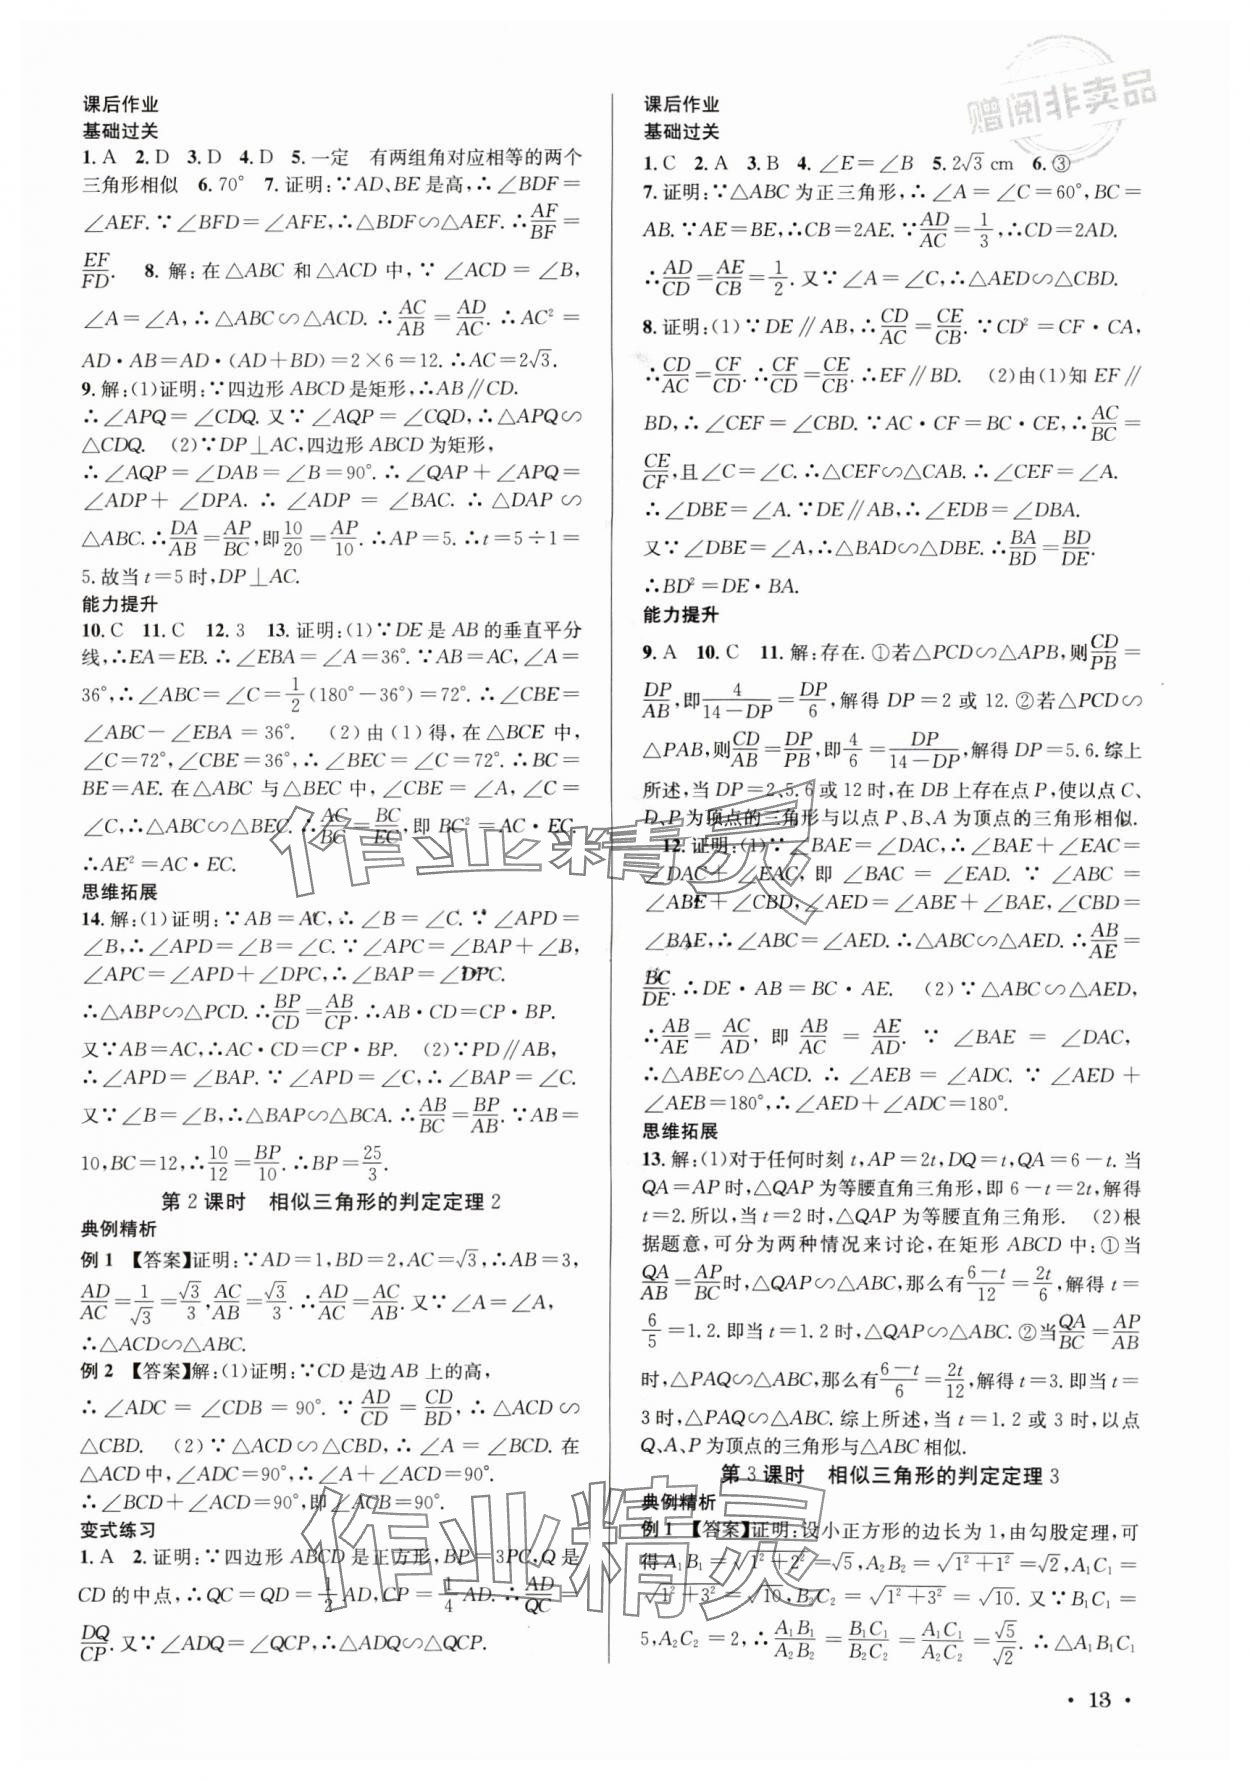 赠阅非卖品
课后作业
基础过关
1. A　2. D　3. D　4. D　5. 一定　有两组角对应相等的两个
三角形相似　6. 70°　7. 证明:∵AD,BE是高,∴∠BDF=
∠AEF.∵∠BFD=∠AFE,∴△BDF∽△AEF.∴AF/BF=
EF/FD.　8. 解:在△ABC和△ACD中,∵∠ACD=∠B,
∠A=∠A,∴△ABC∽△ACD.∴AC/AB=AD/AC.∴AC²=
AD·AB=AD·(AD+BD)=2×6=12.∴AC=2√3.
9. 解:(1)证明:∵四边形ABCD是矩形,∴AB∥CD.
∴∠APQ=∠CDQ.又∵∠AQP=∠CQD,∴△APQ∽
△CDQ.　(2)∵DP⊥AC,四边形ABCD为矩形,
∴∠AQP=∠DAB=∠B=90°.∴∠QAP+∠APQ=
∠ADP+∠DPA.∴∠ADP=∠BAC.∴△DAP∽
△ABC.∴DA/AB=AP/BC,即10/20=AP/10.∴AP=5.∴t=5÷1=
5.故当t=5时,DP⊥AC.
能力提升
10. C　11. C　12. 3　13. 证明:(1)∵DE是AB的垂直平分
线,∴EA=EB.∴∠EBA=∠A=36°.∵AB=AC,∠A=
36°,∴∠ABC=∠C=1/2(180°-36°)=72°.∴∠CBE=
∠ABC-∠EBA=36°.　(2)由(1)得,在△BCE中,
∠C=72°,∠CBE=36°,∴∠BEC=∠C=72°.∴BC=
BE=AE.在△ABC与△BEC中,∠CBE=∠A,∠C=
∠C,∴△ABC∽△BEC.∴AC/BC=BC/EC,即BC²=AC·EC.
∴AE²=AC·EC.
思维拓展
14. 解:(1)证明:∵AB=AC,∴∠B=∠C.∵∠APD=
∠B,∴∠APD=∠B=∠C.∵∠APC=∠BAP+∠B,
∠APC=∠APD+∠DPC,∴∠BAP=∠DPC.
∴△ABP∽△PCD.∴BP/CD=AB/CP.∴AB·CD=CP·BP.
又∵AB=AC,∴AC·CD=CP·BP.　(2)∵PD∥AB,
∴∠APD=∠BAP.∵∠APD=∠C,∴∠BAP=∠C.
又∵∠B=∠B,∴△BAP∽△BCA.∴AB/BC=BP/AB.∵AB=
10,BC=12,∴10/12=BP/10.∴BP=25/3.
第2课时　相似三角形的判定定理2
典例精析
例1　【答案】证明:∵AD=1,BD=2,AC=√3,∴AB=3,
AD/AC=1/√3=√3/3,AC/AB=√3/3.∴AD/AC=AC/AB.又∵∠A=∠A,
∴△ACD∽△ABC.
例2　【答案】解:(1)证明:∵CD是边AB上的高,
∴∠ADC=∠CDB=90°.∵AD/CD=CD/BD,∴△ACD∽
△CBD.　(2)∵△ACD∽△CBD,∴∠A=∠BCD.在
△ACD中,∠ADC=90°,∴∠A+∠ACD=90°,
∴∠BCD+∠ACD=90°,即∠ACB=90°.
变式练习
1. A　2. 证明:∵四边形ABCD是正方形,BP=3PC,Q是
CD的中点,∴QC=QD=1/2AD,CP=1/4AD.∴AD/QC=
DQ/CP.又∵∠ADQ=∠QCP,∴△ADQ∽△QCP.
课后作业
基础过关
1. C　2. A　3. B　4. ∠E=∠B　5. 2√3 cm　6. ③
7. 证明:∵△ABC为正三角形,∴∠A=∠C=60°,BC=
AB.∵AE=BE,∴CB=2AE.∵AD/AC=1/3,∴CD=2AD.
∴AD/CD=AE/CB=1/2.又∵∠A=∠C,∴△AED∽△CBD.
8. 证明:(1)∵DE∥AB,∴CD/AC=CE/CB.∵CD²=CF·CA,
∴CD/AC=CF/CD.∴CF/CD=CE/CB.∴EF∥BD.　(2)由(1)知EF∥
BD,∴∠CEF=∠CBD.∵AC·CF=BC·CE,∴AC/BC=
CE/CF,且∠C=∠C.∴△CEF∽△CAB.∴∠CEF=∠A.
∴∠DBE=∠A.∵DE∥AB,∴∠EDB=∠DBA.
又∵∠DBE=∠A,∴△BAD∽△DBE.∴BA/BD=BD/DE.
∴BD²=DE·BA.
能力提升
9. A　10. C　11. 解:存在.①若△PCD∽△APB,则CD/PB=
DP/AB,即4/(14-DP)=DP/6,解得DP=2或12.②若△PCD∽
△PAB,则CD/AB=DP/PB,即4/6=DP/(14-DP),解得DP=5.6.综上
所述,当DP=2、5.6或12时,在DB上存在点P,使以点C、
D、P为顶点的三角形与以点P、B、A为顶点的三角形相似.
12. 证明:(1)∵∠BAE=∠DAC,∴∠BAE+∠EAC=
∠DAC+∠EAC,即∠BAC=∠EAD.∵∠ABC=
∠ABE+∠CBD,∠AED=∠ABE+∠BAE,∠CBD=
∠BAE,∴∠ABC=∠AED.∴△ABC∽△AED.∴AB/AE=
BC/DE.∴DE·AB=BC·AE.　(2)∵△ABC∽△AED,
∴AB/AE=AC/AD,即AB/AC=AE/AD.∵∠BAE=∠DAC,
∴△ABE∽△ACD.∴∠AEB=∠ADC.∵∠AED+
∠AEB=180°,∴∠AED+∠ADC=180°.
思维拓展
13. 解:(1)对于任何时刻t,AP=2t,DQ=t,QA=6-t.当
QA=AP时,△QAP为等腰直角三角形,即6-t=2t,解得
t=2.所以,当t=2时,△QAP为等腰直角三角形.　(2)根
据题意,可分为两种情况来讨论,在矩形ABCD中:①当
QA/AB=AP/BC时,△QAP∽△ABC,那么有(6-t)/12=2t/6,解得t=
6/5=1.2.即当t=1.2时,△QAP∽△ABC.②当QA/BC=AP/AB
时,△PAQ∽△ABC,那么有(6-t)/6=2t/12,解得t=3.即当t=
3时,△PAQ∽△ABC.综上所述,当t=1.2或3时,以点
Q、A、P为顶点的三角形与△ABC相似.
第3课时　相似三角形的判定定理3
典例精析
例1　【答案】证明:设小正方形的边长为1,由勾股定理,可
得A₁B₁=√(1²+2²)=√5,A₂B₂=√(1²+1²)=√2,A₁C₁=
√(1²+3²)=√10,B₂C₂=√(1²+3²)=√10.又∵B₁C₁=
5,A₂C₂=2,∴A₁B₁/A₂B₂=B₁C₁/B₂C₂=A₁C₁/A₂C₂=√5/√2.∴△A₁B₁C₁
· 13 ·
作业精灵
作业精灵